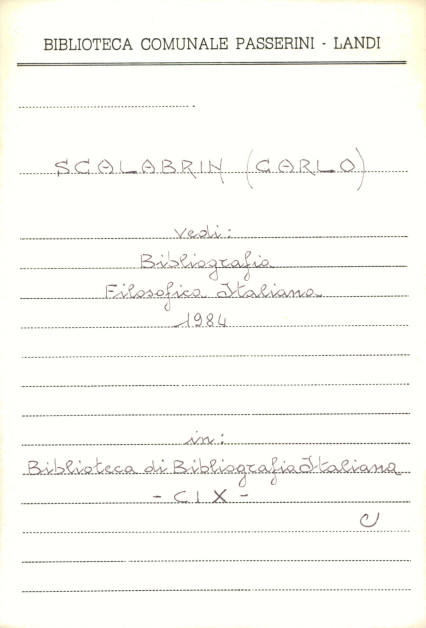 BIBLIOTECA COMUNALE PASSERINI - LANDI
SCALABRIN (CARLO)
vedi:
Bibliografia
Filosofica Italiana
1984
in:
Biblioteca di Bibliografia Italiana
- CIX -